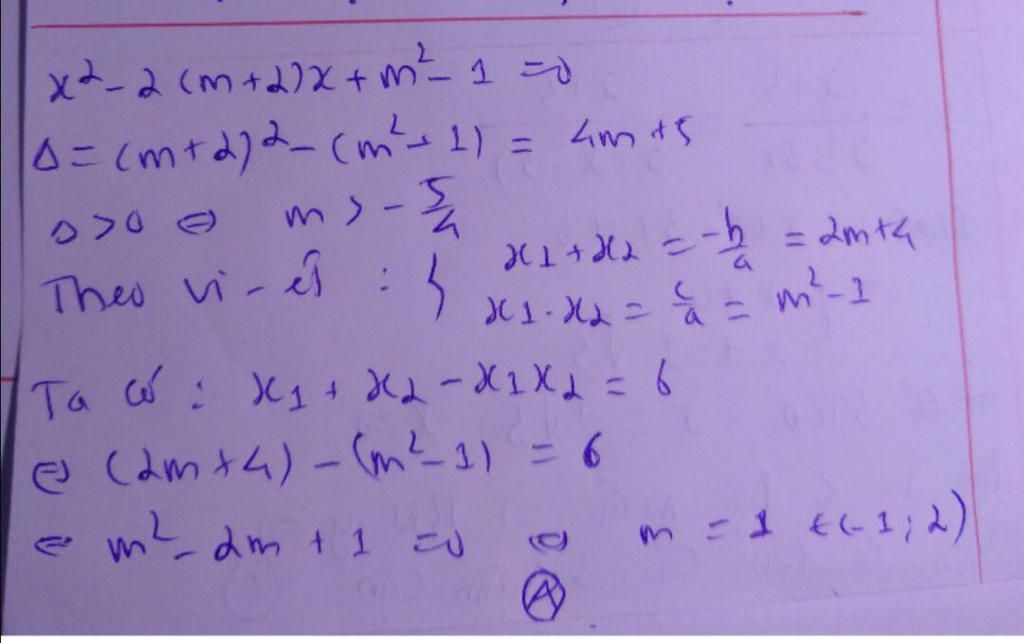 x² - 2(m+2)x + m² - 1 = 0
Δ = (m+2)² - (m² - 1) = 4m + 5
Δ > 0 ⇔ m > -5/4
Theo vi-ét : { x1 + x2 = -b/a = 2m+4
x1 . x2 = c/a = m² - 1
Ta có : x1 + x2 - x1x2 = 6
⇔ (2m+4) - (m² - 1) = 6
⇔ m² - 2m + 1 = 0 ⇔ m = 1 ∈ (-1; 2)
A